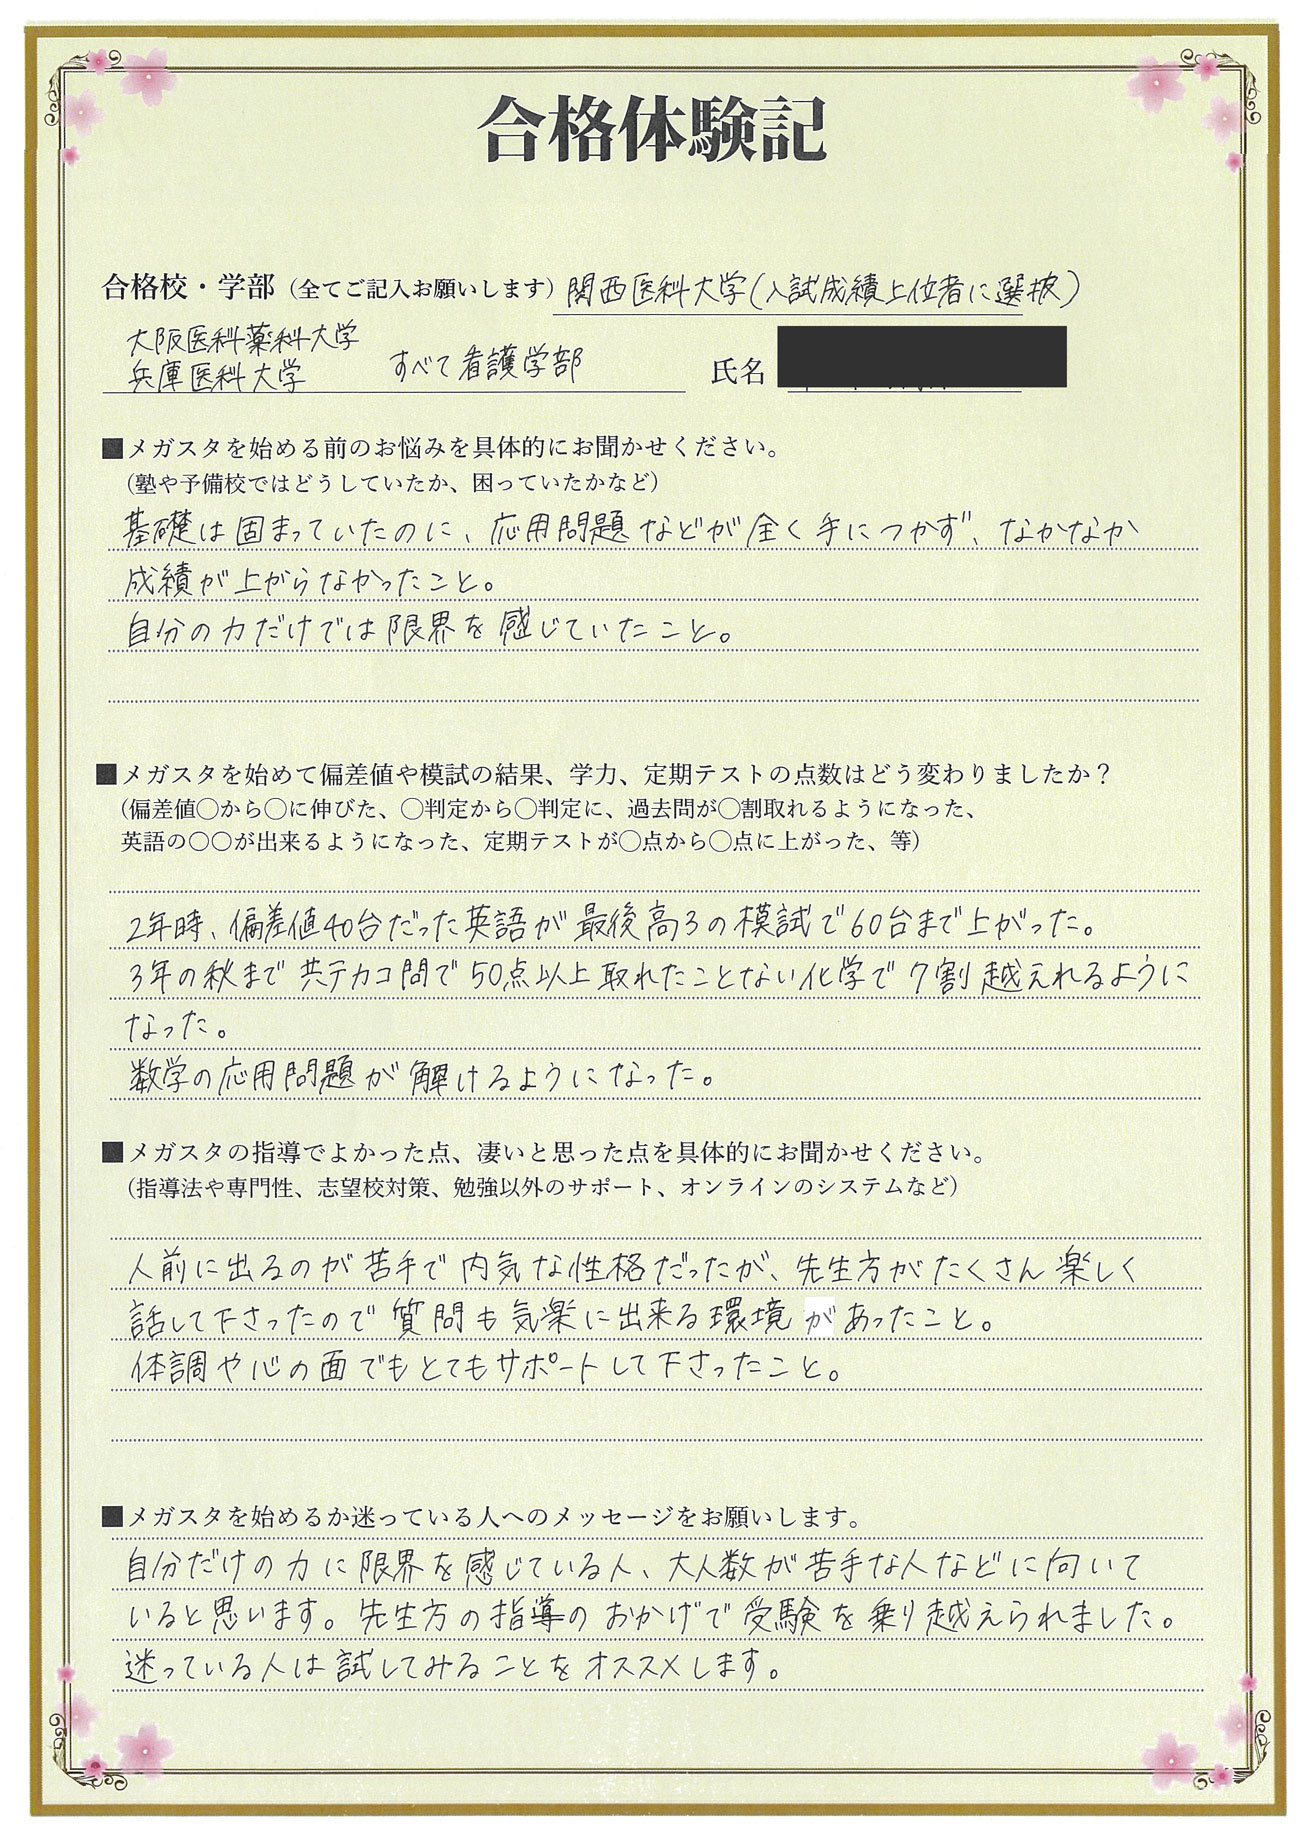 合格体験記
合格校・学部（全てご記入お願いします）関西医科大学(入試成績上位者に選抜)
大阪医科薬科大学
兵庫医科大学　すべて看護学部　氏名
■メガスタを始める前のお悩みを具体的にお聞かせください。
（塾や予備校ではどうしていたか、困っていたかなど）
基礎は固まっていたのに、応用問題などが全く手につかず、なかなか
成績が上がらなかったこと。
自分の力だけでは限界を感じていたこと。
■メガスタを始めて偏差値や模試の結果、学力、定期テストの点数はどう変わりましたか？
（偏差値〇から〇に伸びた、〇判定から〇判定に、過去問が〇割取れるようになった、
英語の〇〇が出来るようになった、定期テストが〇点から〇点に上がった、等）
2年時、偏差値40台だった英語が最後高3の模試で60台まで上がった。
3年の秋まで共テカコ問で50点以上取れたことない化学で7割越えれるように
なった。
数学の応用問題が解けるようになった。
■メガスタの指導でよかった点、凄いと思った点を具体的にお聞かせください。
（指導法や専門性、志望校対策、勉強以外のサポート、オンラインのシステムなど）
人前に出るのが苦手で内気な性格だったが、先生方がたくさん楽しく
話して下さったので質問も気楽に出来る環境があったこと。
体調や心の面でもとてもサポートして下さったこと。
■メガスタを始めるか迷っている人へのメッセージをお願いします。
自分だけの力に限界を感じている人、大人数が苦手な人などに向いて
いると思います。先生方の指導のおかげで受験を乗り越えられました。
迷っている人は試してみることをオススメします。